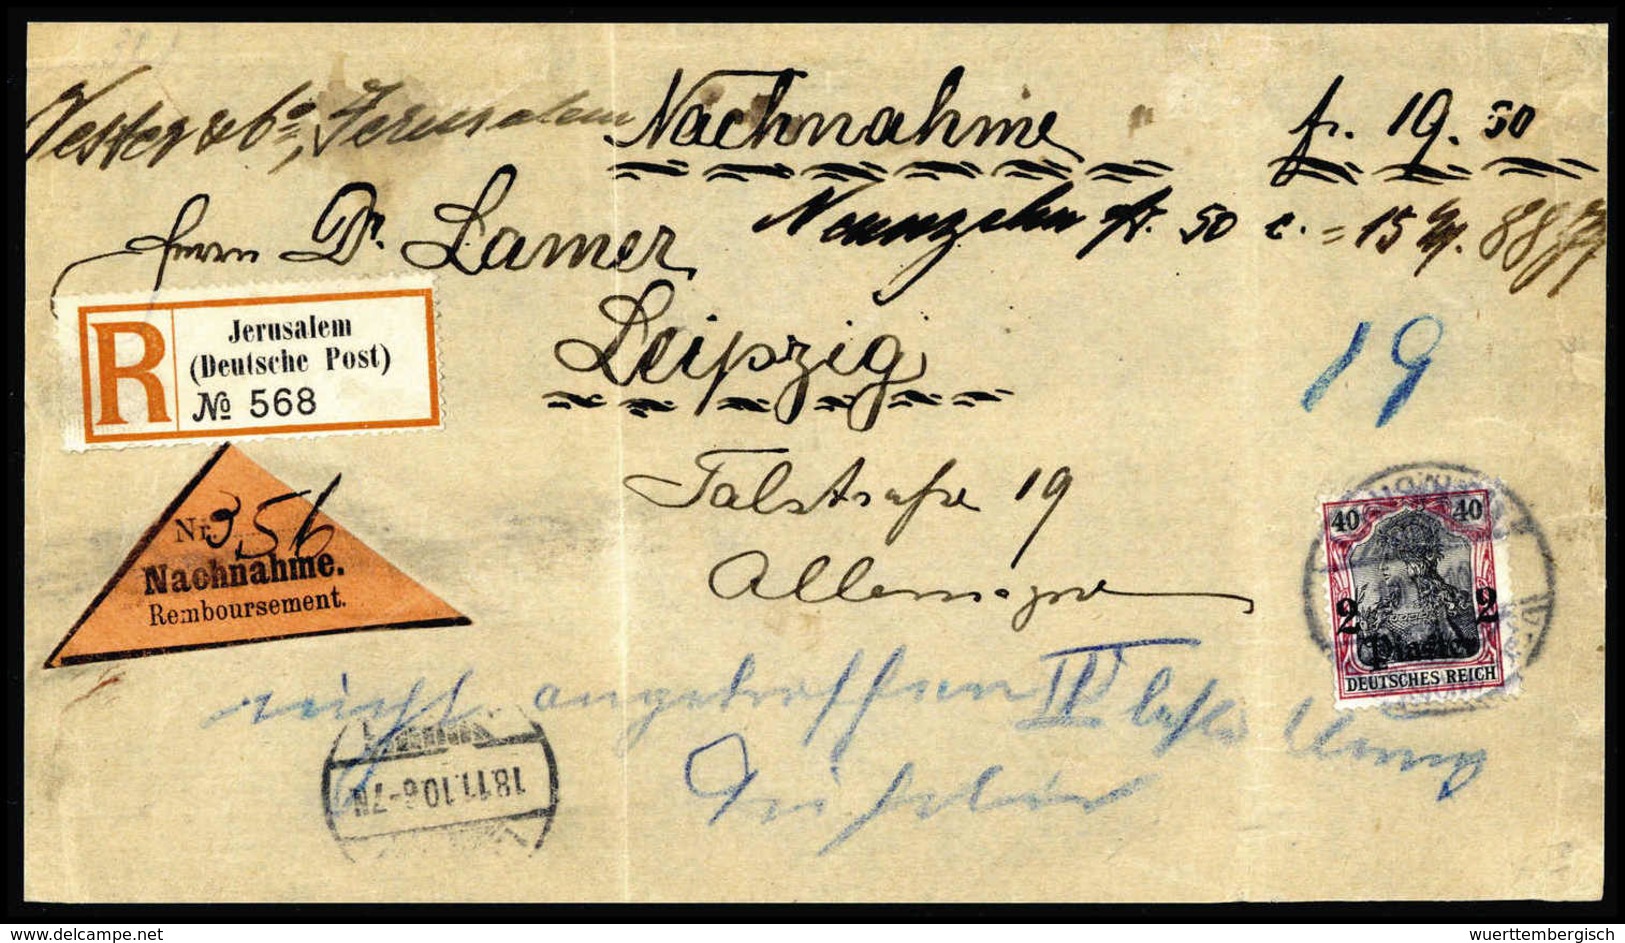 Vester & Co, Jerusalem
Nachnahme fr. 19.50
Neunzehn fr. 50 c. = 15 M. 88
Herrn Dr. Lamer
Leipzig
Talstraße 19
Allemagne
19
R
Jerusalem
(Deutsche Post)
№ 568
Nr. 356
Nachnahme.
Remboursement.
40 40
2 2
Piaster
DEUTSCHES REICH
nicht angetroffen II Bestellung
18.11.10.6-7N
delcampe.net
wuerttembergisch